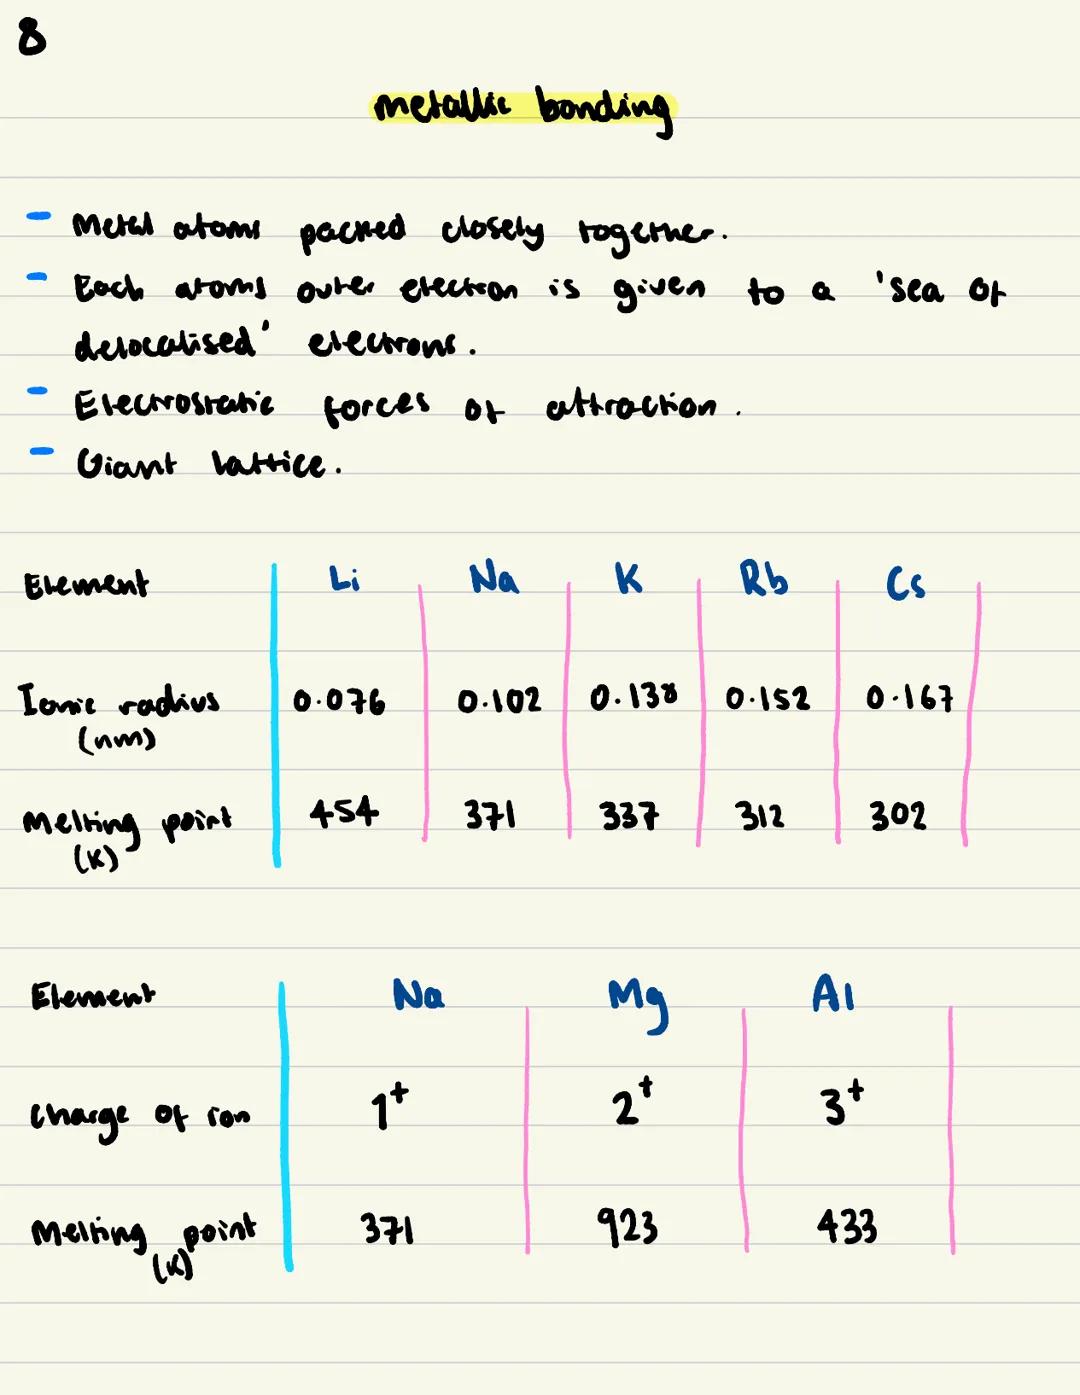 8
metallic bonding
- Metal atoms packed closely together.
- Each atoms outer electron is given to a 'sea of
delocalised' electrons.
- Electrostatic forces of attraction.
- Giant lattice.
Element Li Na K Rb Cs
Ionic radius 0.076 0.102 0.138 0.152 0.167
(nm)
Melting point 454 371 337 312 302
(K)
Element Na Mg Al
Charge of ion 1+ 2+ 3+
Melting point 371 923 433
(K)